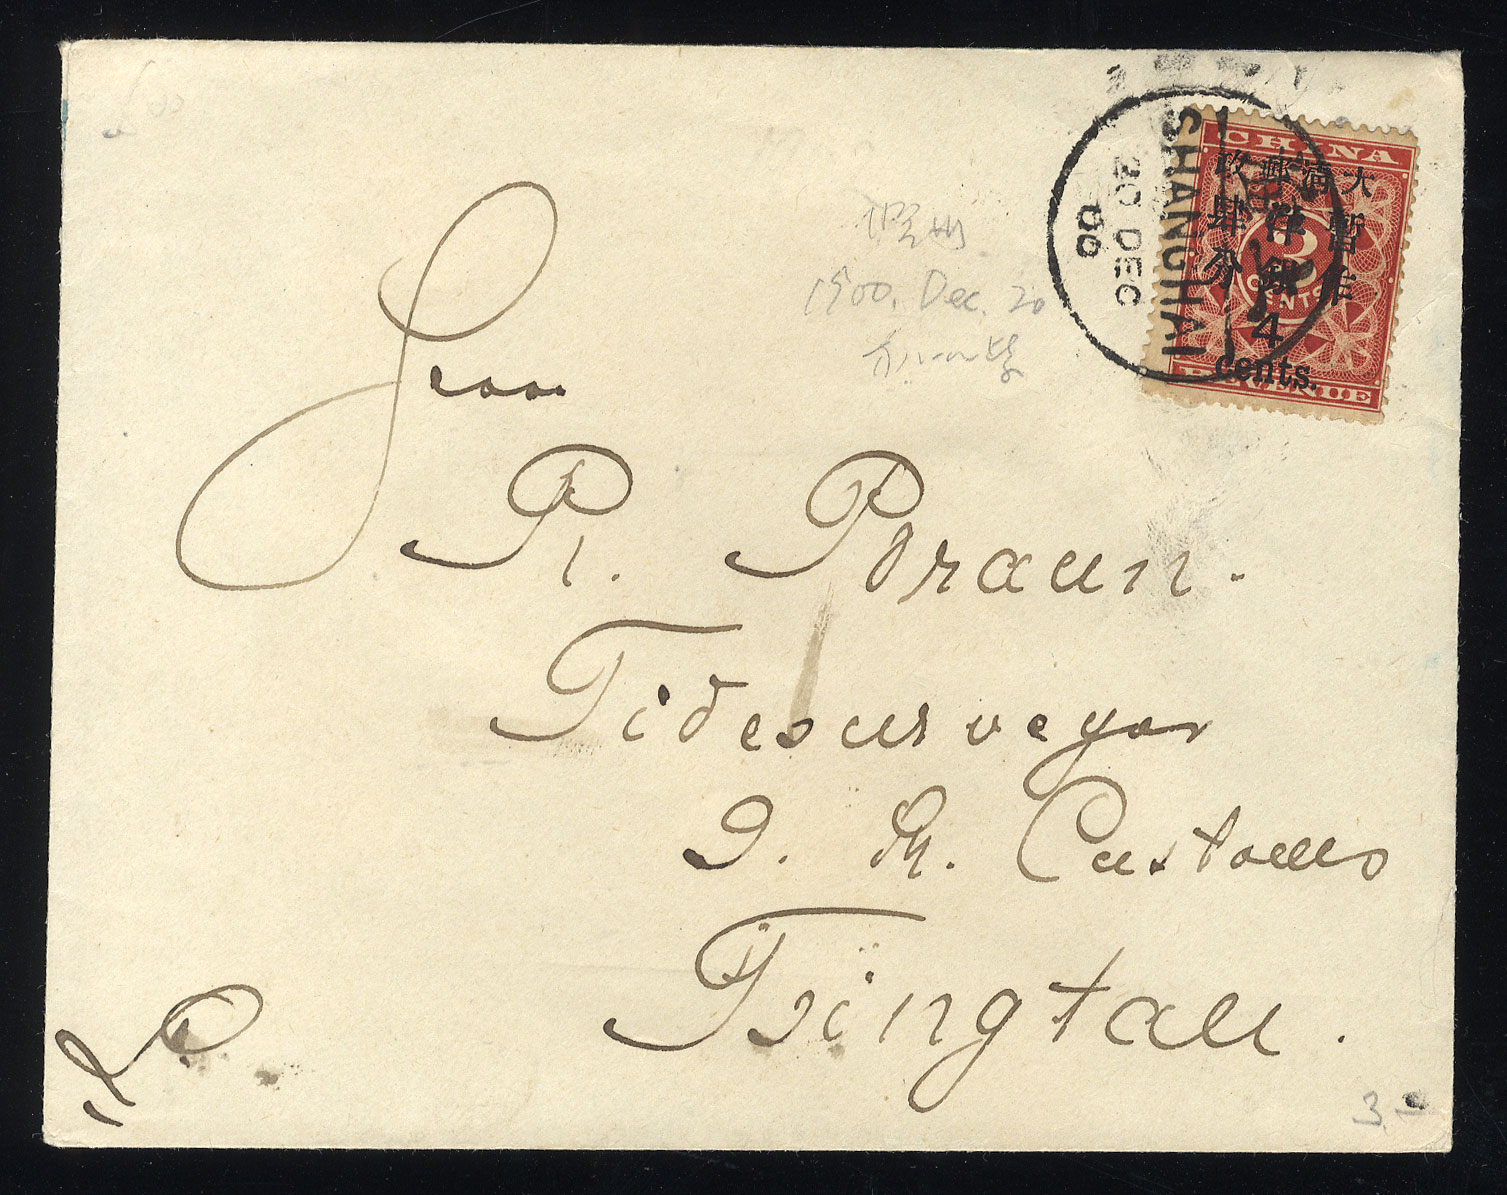 CHINA
大清郵政
暫作
洋銀
肆分
3
CENTS
4
cents.
REVENUE
SHANGHAI
20 DEC
00
1900. Dec. 20
Herrn
R. Braun.
Tidesurveyor
I. M. Customs
Tsingtau.
3 -